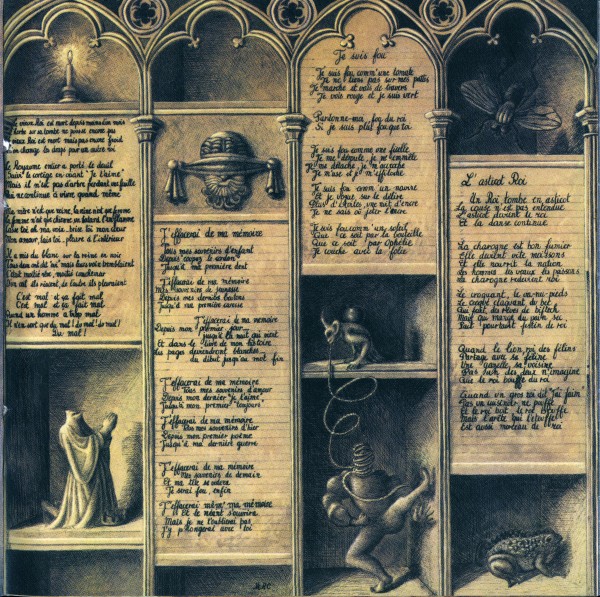 Le vieux Roi est mort depuis moins d'un mois
L'herbe sur sa tombe ne pousse encore pas
Vieux Roi est mort mais pas encore froid
on change les draps pour un autre roi
Le Royaume entier a porté le deuil
Suivi le cortège en criant "Je t'aime"
Mais il n'est pas d'arbre perdant sa feuille
ne continue à vivre quand même
Ma mère n'est que reine, la reine n'est que femme
femme n'est que chienne, un bâtard l'enflamme
toi et ma voix, brise toi mon cœur
Mon amour, tais toi, pleure à l'intérieur
Il a mis du blanc sur la reine en noir
L'un d'eux moitié rire, moitié condoléances
C'est mal et ça fait mal
C'est mal et ça fait mal
Quand un homme a trop mal
Il n'en sort que du mal! du mal! du mal!
Du mal!
J'effacerai de ma mémoire
Tous mes souvenirs d'enfant
Depuis coupez le cordon
Jusqu'à ma première dent
J'effacerai de ma mémoire
Mes souvenirs de jeunesse
Depuis mes derniers bonbons
Jusqu'à ma première caresse
J'effacerai de ma mémoire
Depuis mon premier jour
jusqu'à la nuit qui vient
Et dans le livre de mon histoire
les pages deviendront blanches
du début jusqu'au mot fin
J'effacerai de ma mémoire
Tous mes souvenirs d'amour
Depuis mon dernier "je t'aime"
Jusqu'à mon premier "toujours"
J'effacerai de ma mémoire
Tous mes souvenirs d'hier
Depuis mon premier poème
Jusqu'à ma dernière guerre
J'effacerai de ma mémoire
Mes souvenirs de demain
Et ma tête se videra
Je serai fou, enfin
J'effacerai même ma mémoire
Et le néant s'ouvrira
Mais je ne t'oublierai pas
J'y plongerai avec toi
Je suis fou
Je suis fou comm'une tomate
Je ne tiens pas sur mes pattes
Je marche et vais de travers
Je vois rouge et je suis vert
Pardonne-moi, fou du roi
Si je suis plus fou que toi
Je suis fou comme une ficelle
Je me dépule, je m'emmêle
Je me détache, je m'accroche
Je m'use et je m'effiloche
Je suis fou comm' un navire
Et je vogue sur le délire
Plus d'étoiles, que d'encre
Je ne sais où jeter l'ancre
Je suis fou comm' un soleil
Que ce soit par la bouteille
Que ce soit par Ophélie
Je couche avec la folie
L'asticot Roi
Un Roi tombe en asticot
La cause n'est pas entendue
L'asticot devient le roi
Et la danse continue
La charogne est bon fumier
Elle devient vite moissons
Et elle nourrit la nation
des hommes, les veaux, les poissons
La charogne redevient roi
Le croquant, le va-nu-pieds
Le croque claquant de bec
Qui fait des rêves de bifteck
Mais qui mange du pain sec
Fait pourtant festin de roi
Quand le lion roi des félins
Partage avec sa féline
Une gazelle sa voisine
Pas un des deux n'imagine
Que le roi bouffe du roi
Quand un gros roi dit "J'ai faim"
Et le roi boit, le roi bouffe
Mais l'arête qui l'étouffe
Est aussi morceau de roi